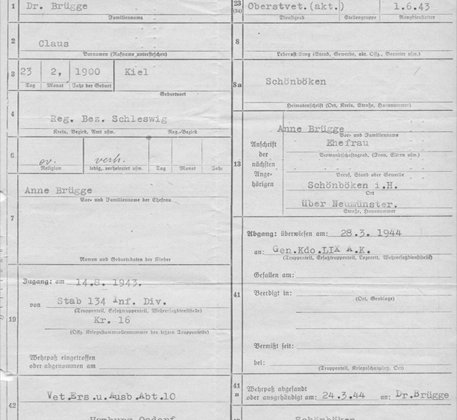 1 Dr. Brügge
Familienname
2 Claus
Vornamen (Rufname unterstreichen)
3 23 2, 1900 Kiel
Tag Monat Jahr der Geburt Geburtsort
4 Reg. Bez. Schleswig
Kreis, Bezirk, Amt usw. Reg.-Bezirk
6 ev. verh.
Religion ledig, verheiratet usw. Tag Monat Jahr
Anne Brügge
7 Vor- und Familienname der Ehefrau
Namen und Geburtsdaten der Kinder
Zugang: am 14.8.1943.
von Stab 134 Inf. Div.
(Truppenteil, Ersatztruppenteil, Wehrersatzdienststelle)
19 Kr. 16
Wehrpaß eingetroffen
oder abgenommen am
42 Vet.Ers.u.Ausb.Abt.10
23 Oberstvet.(akt.) 1.6.43
(24) Dienstgrad Stellengruppe Rangdienstalter
8
9a Schönböken
Heimatanschrift (Ort, Kreis, Straße, Hausnummer)
Anne Brügge
Vor- und Familienname
Anschrift Ehefrau
der
nächsten
13 Ange-
hörigen Beruf, Stand oder Gewerbe
Schönböken i.H.
Ort
über Neumünster.
Straße, Hausnummer
Abgang: überwiesen am: 28.3. 1944
an: Gen.Kdo.LIX A.K.
(Truppenteil, Ersatztruppenteil, Lazarett, Wehrersatzdienststelle)
Gefallen am:
41 Beerdigt in:
(Ort, Grablage)
Vermißt seit:
bei:
41a Wehrpaß abgesandt
oder ausgehändigt am: 24.3.44 an: Dr.Brügge
Schönböken